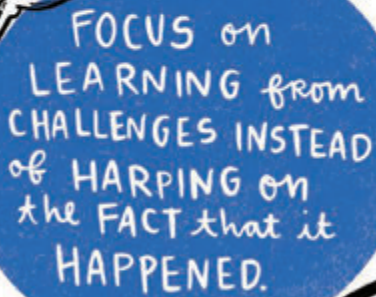 FOCUS on
LEARNING from
CHALLENGES INSTEAD
of HARPING on
the FACT that it
HAPPENED.